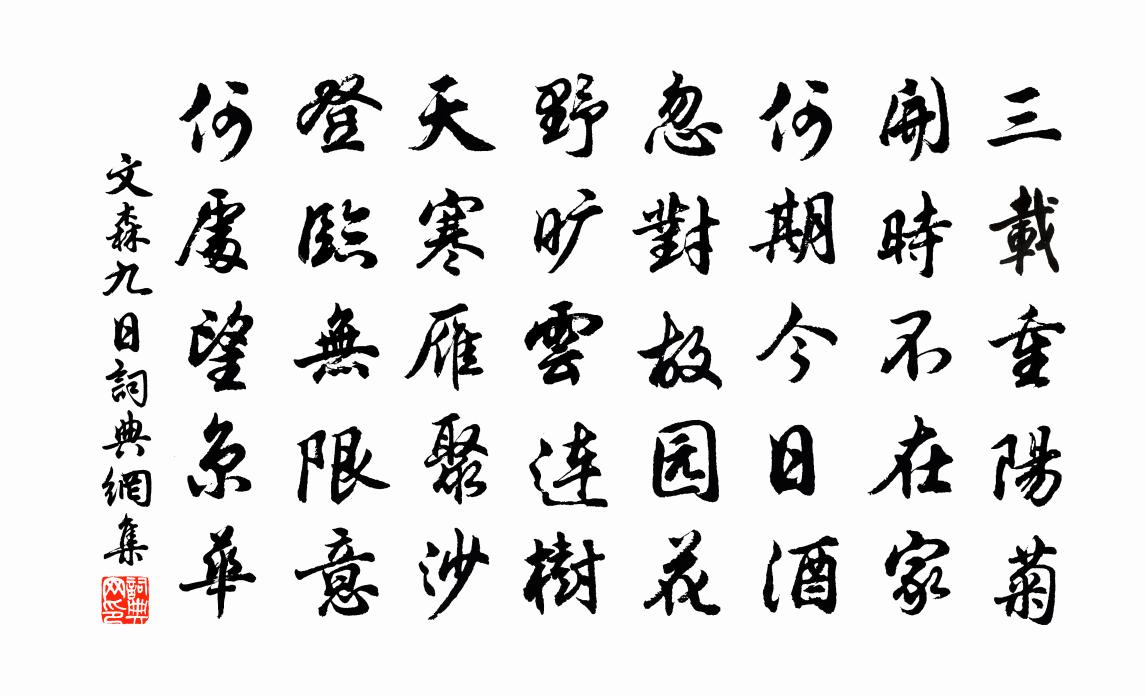 三載重陽菊
開時不在家
何期今日酒
忽對故园花
野旷雲连樹
天寒雁聚沙
登臨無限意
何處望京華
文森九日詞典網集
詞典网印